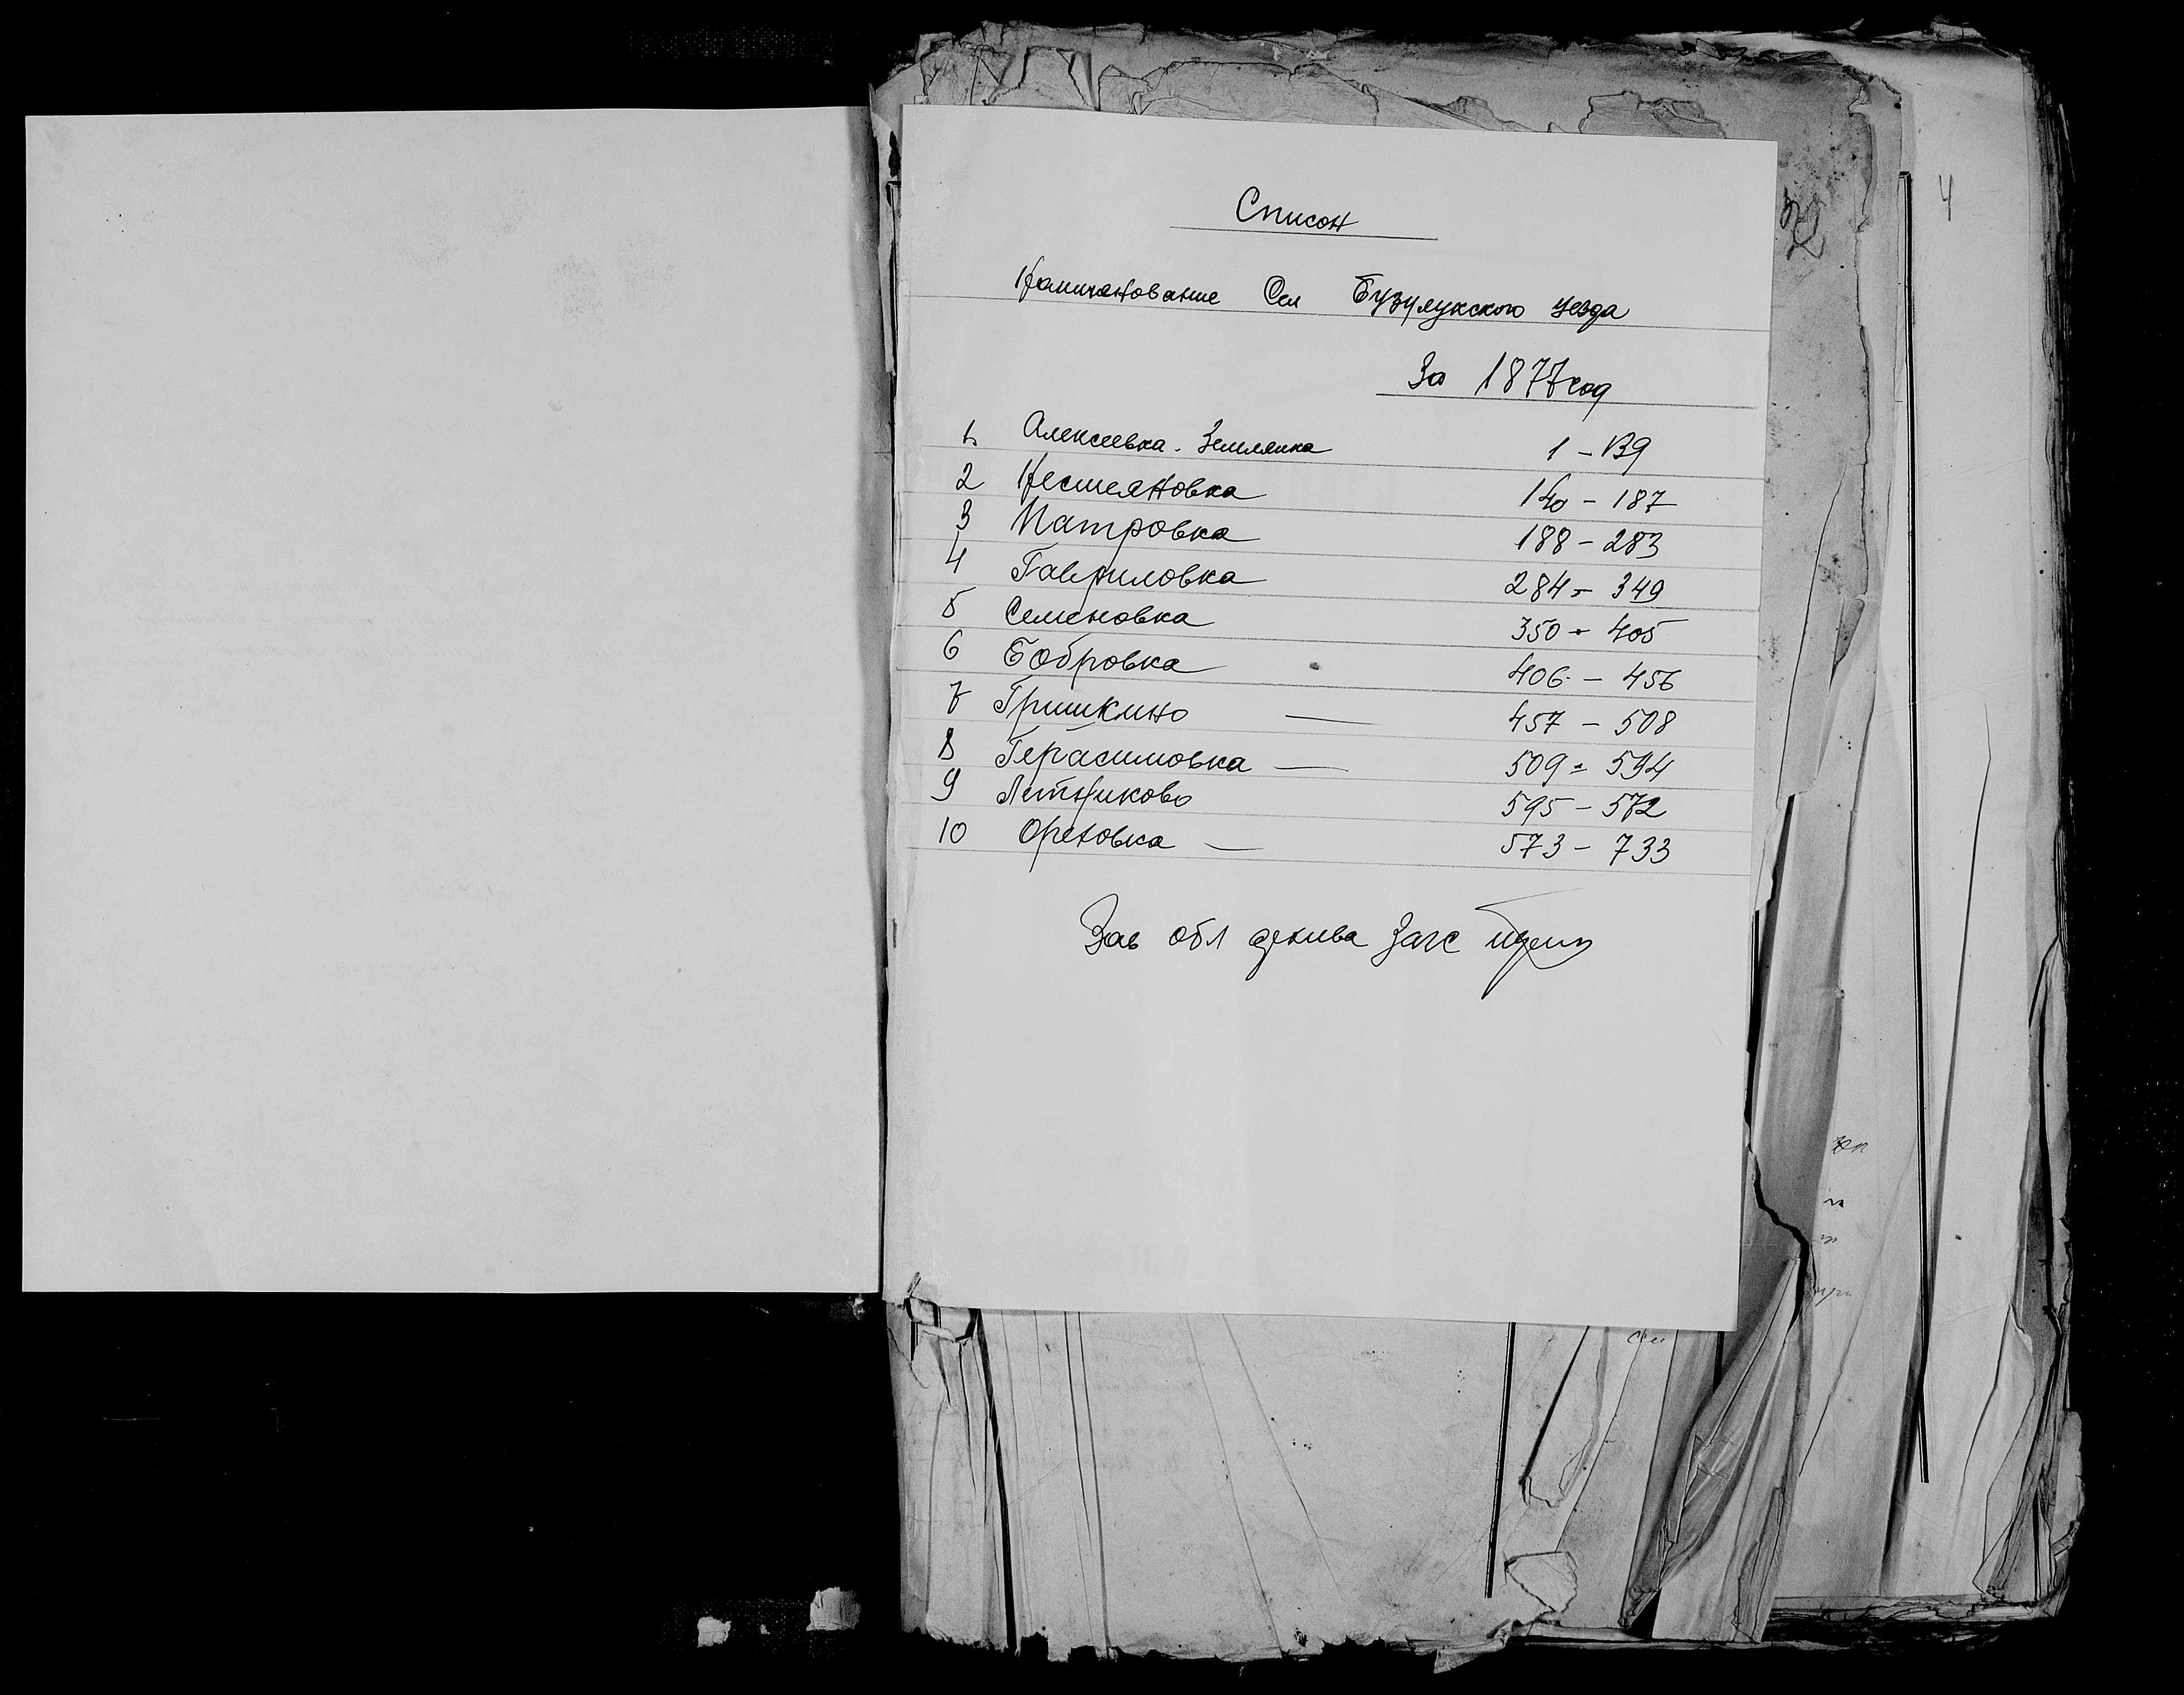 Список
Наименование Сел Бузулукского уезда
За 1877 год
1. Алексеевка. Землянка 1 – 139
2 Несмеяновка 140 – 187
3 Патровка 188 – 283
4 Гавриловка 284 – 349
5 Семеновка 350 – 405
6 Бобровка 406 – 456
7 Гришкино — 457 – 508
8 Герасимовка — 509 – 594
9 Летниково 595 – 572
10 Ореховка — 573 – 733
Зав обл архива Загс
4